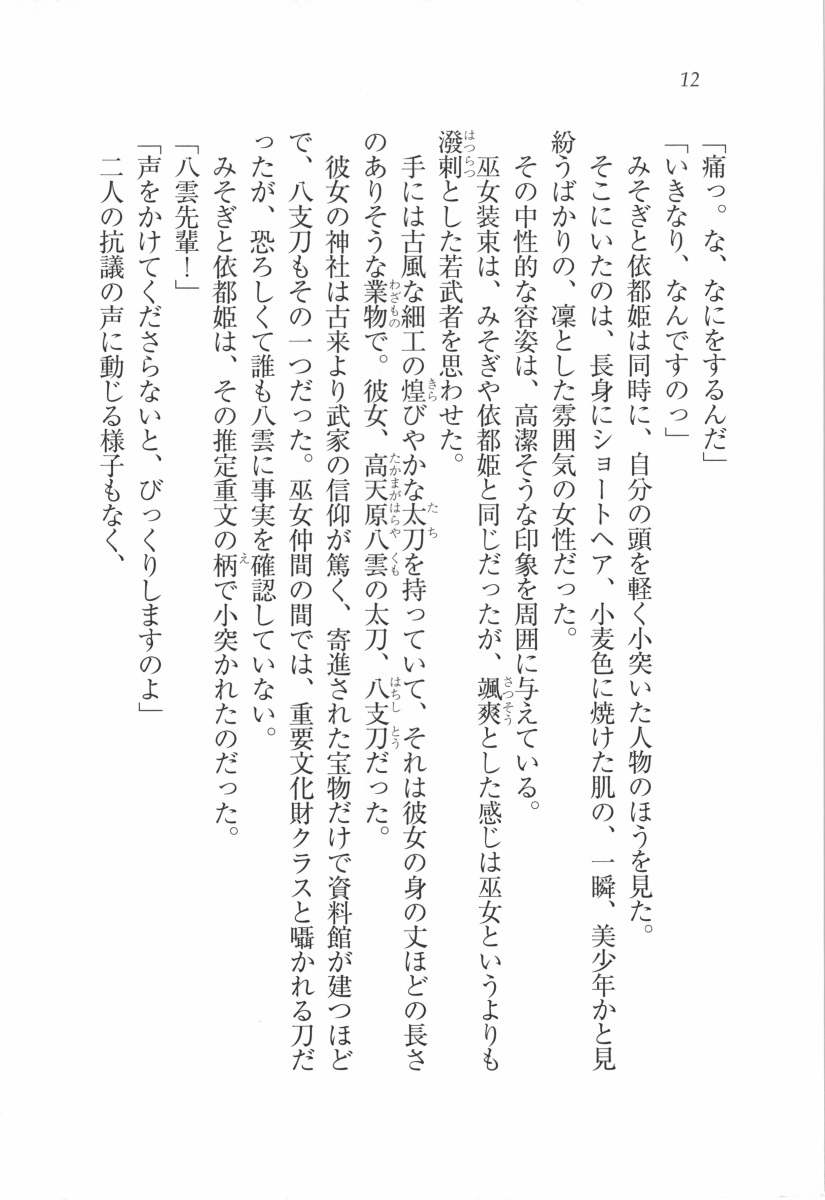 12
「痛っ。な、なにをするんだ」
「いきなり、なんですのっ」
みそぎと依都姫は同時に、自分の頭を軽く小突いた人物のほうを見た。
そこにいたのは、長身にショートヘア、小麦色に焼けた肌の、一瞬、美少年かと見
紛うばかりの、凜とした雰囲気の女性だった。
その中性的な容姿は、高潔そうな印象を周囲に与えている。
巫女装束は、みそぎや依都姫と同じだったが、颯爽とした感じは巫女というよりも
潑剌とした若武者を思わせた。
手には古風な細工の煌びやかな太刀を持っていて、それは彼女の身の丈ほどの長さ
のありそうな業物で。彼女、高天原八雲の太刀、八支刀だった。
彼女の神社は古来より武家の信仰が篤く、寄進された宝物だけで資料館が建つほど
で、八支刀もその一つだった。巫女仲間の間では、重要文化財クラスと囁かれる刀だ
ったが、恐ろしくて誰も八雲に事実を確認していない。
みそぎと依都姫は、その推定重文の柄で小突かれたのだった。
「八雲先輩！」
「声をかけてくださらないと、びっくりしますのよ」
二人の抗議の声に動じる様子もなく、